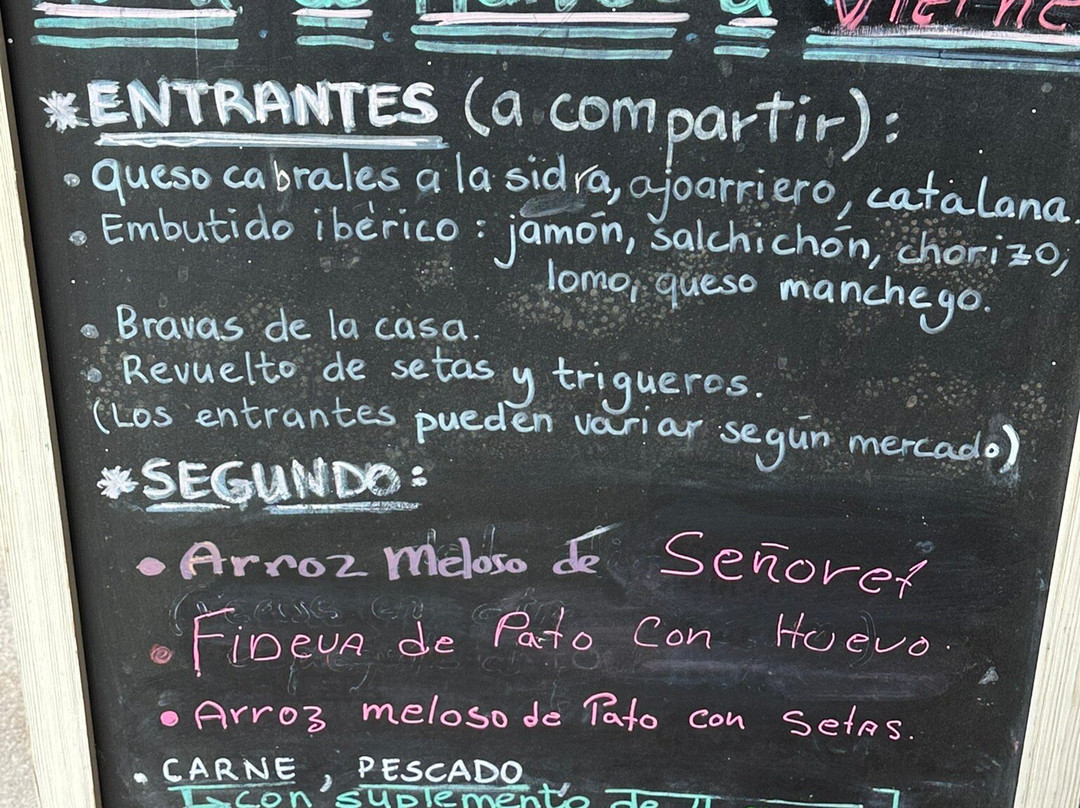 de a Vierne
*ENTRANTES (a compartir):
• Queso cabrales a la sidra, ajoarriero, catalana.
• Embutido ibérico: jamón, salchichón, chorizo,
lomo, queso manchego.
• Bravas de la casa.
• Revuelto de setas y trigueros.
(Los entrantes pueden variar según mercado)
*SEGUNDO:
• Arroz meloso de Señoret
• FIDEUA de Pato Con Huevo.
• Arroz meloso de Pato con setas.
• CARNE, PESCADO
↳con suplemento de